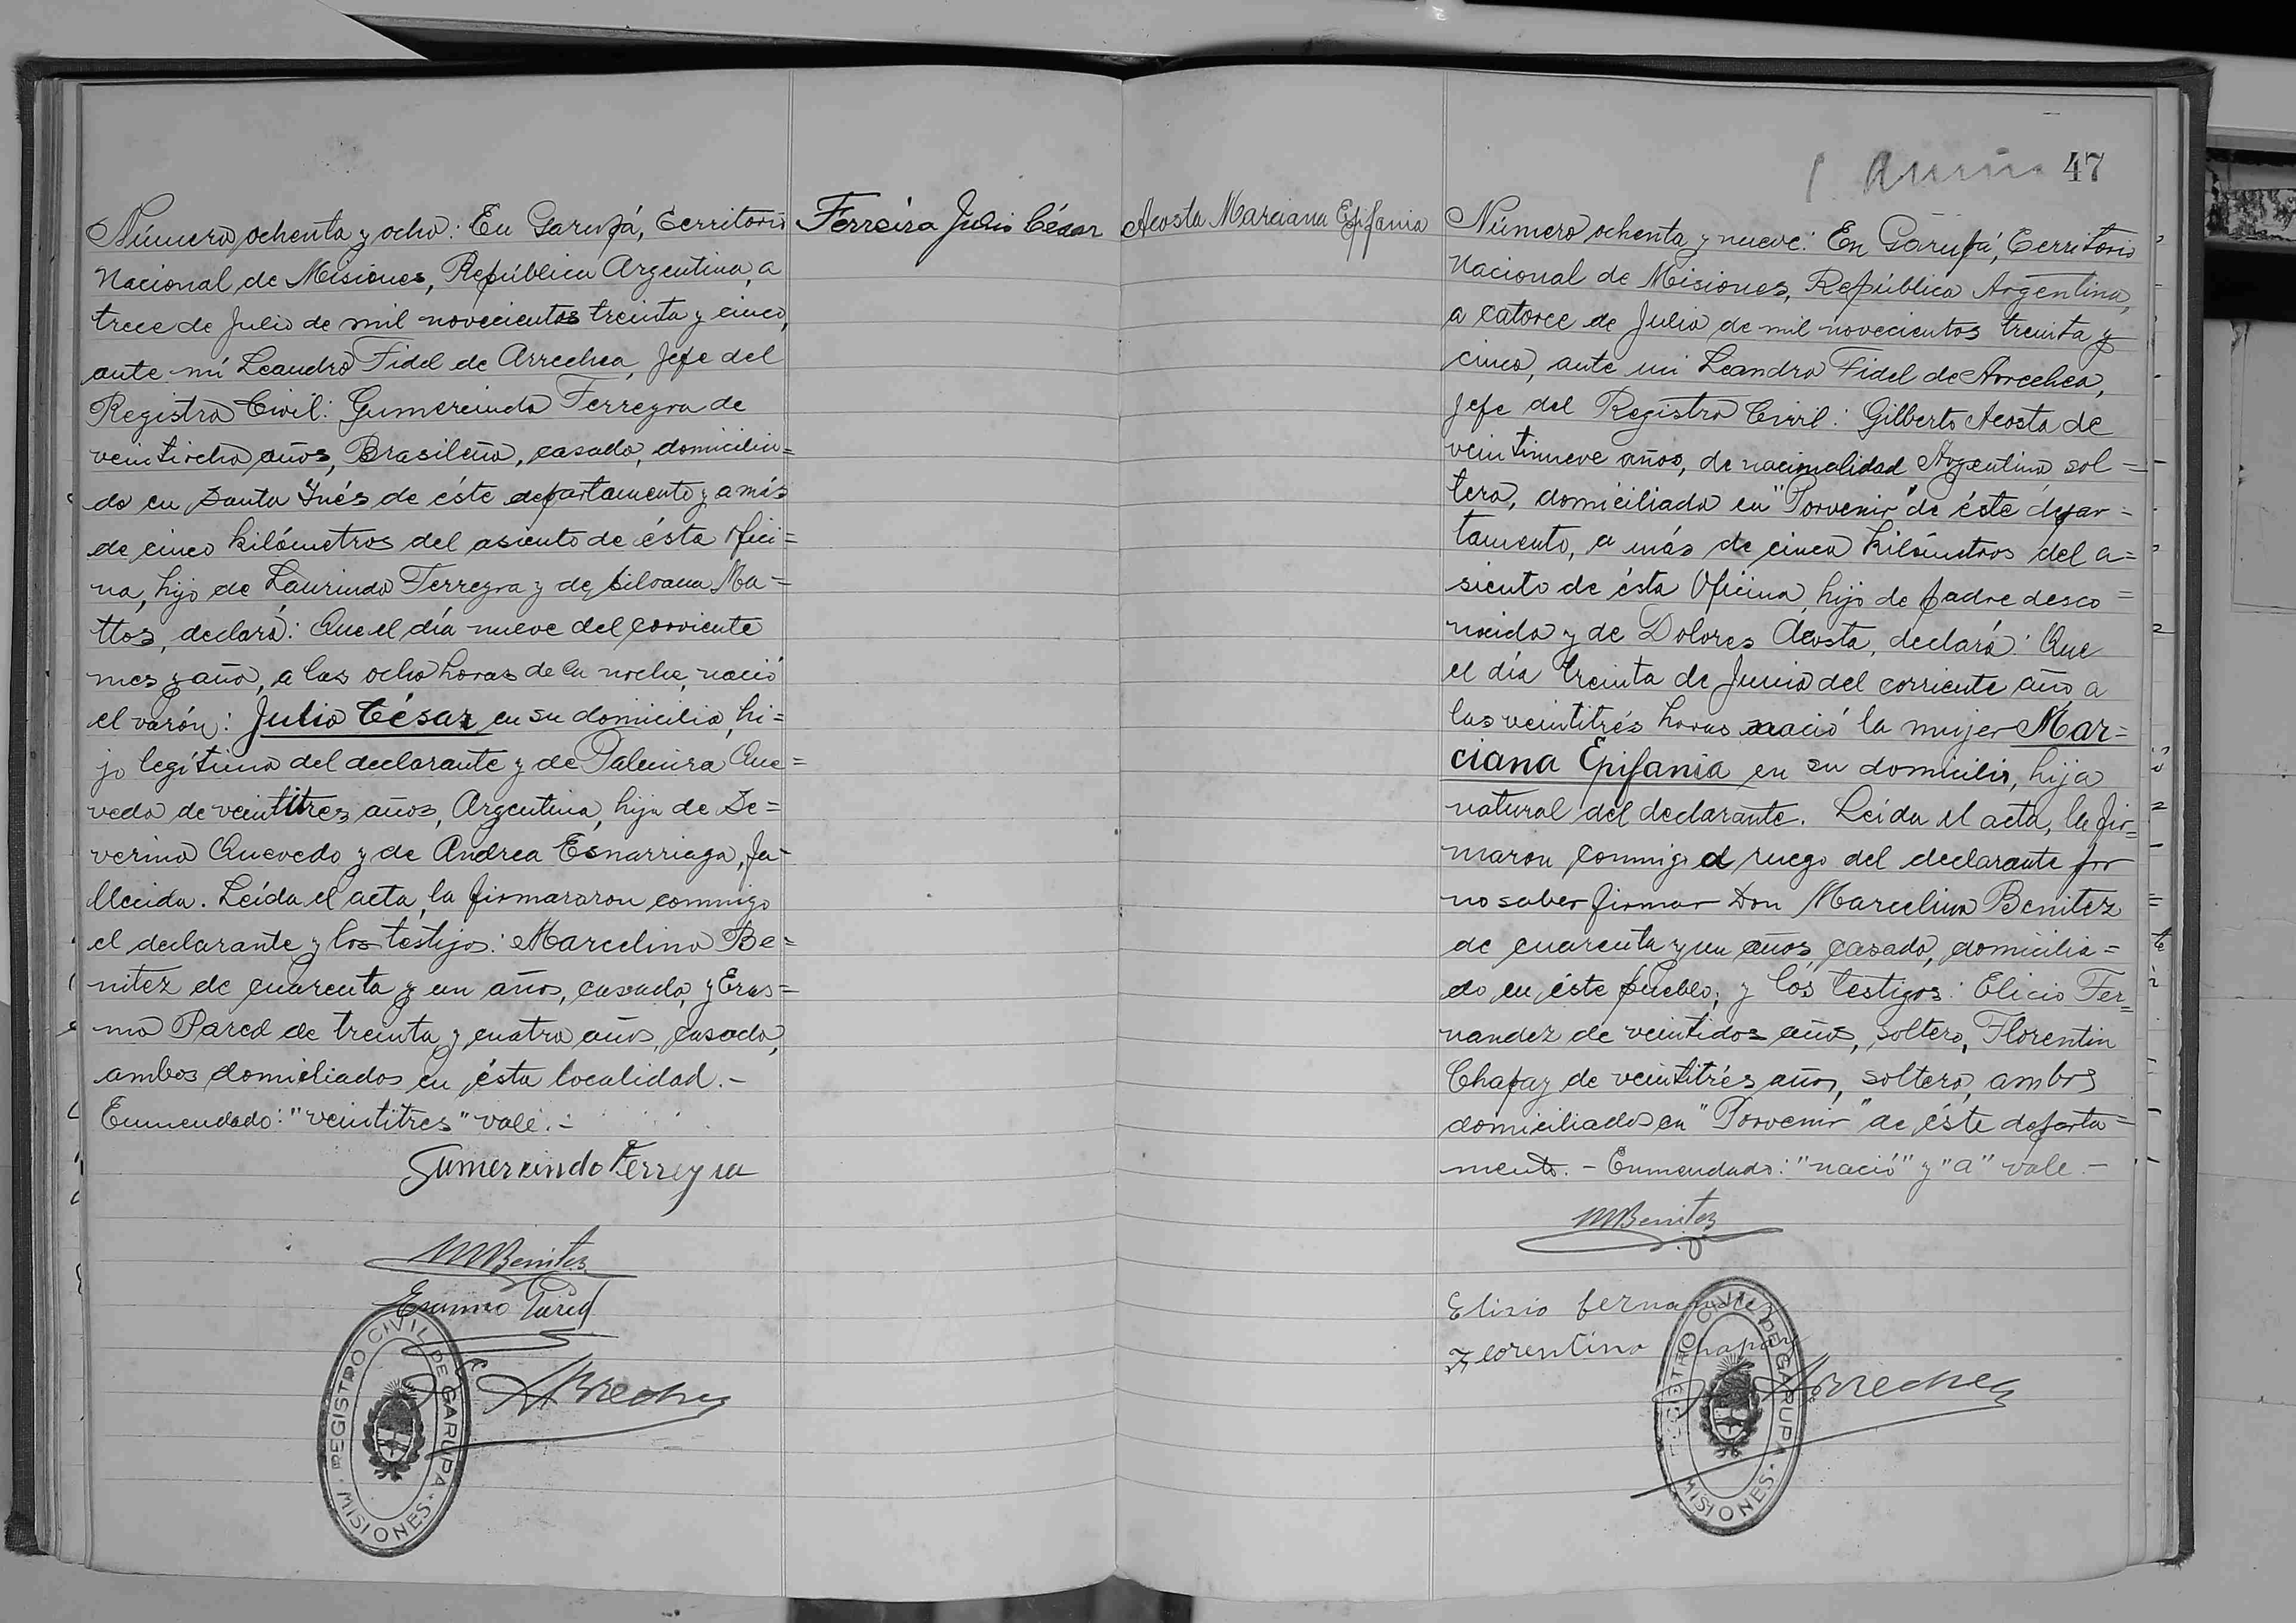 Número ochenta y ocho: En Garupá, Territorio
Nacional de Misiones, República Argentina, a
trece de Julio de mil novecientos treinta y cinco,
ante mí Leandro Fidel de Arrechea, Jefe del
Registro Civil: Gumercindo Ferreyra de
veintiocho años, Brasileño, casado, domicilia=
do en Santa Inés de éste departamento y a más
de cinco kilómetros del asiento de ésta Ofici=
na, hijo de Laurindo Ferreyra y de Silvana Ma=
ttos, declaró: Que el día nueve del corriente
mes y año, a las ocho horas de la noche, nació
el varón: Julio César en su domicilio, hi=
jo legítimo del declarante y de Palmira Que=
vedo de veintitres años, Argentina, hija de Se=
verino Quevedo y de Andrea Esnarriaga, fa=
llecida. Leída el acta, la firmararon conmigo
el declarante y los testijos: Marcelino Be=
nitez de cuarenta y un años, casado, y Eras=
mo Pared de treinta y cuatro años, casado,
ambos domiciliados en ésta localidad.-
Enmendado: "veintitres" vale.-
Gumercindo Ferreyra
MBenitez
Erasmo Pared
Arrechea
REGISTRO CIVIL DE GARUPA
· MISIONES ·
Ferreira Julio César
Acosta Marciana Epifania
47
Número ochenta y nueve: En Garupá, Territorio
Nacional de Misiones, República Argentina,
a catorce de Julio de mil novecientos treinta y
cinco, ante mi Leandro Fidel de Arrechea,
Jefe del Registro Civil: Gilberto Acosta de
veintinueve años, de nacionalidad Argentino, sol=
tero, domiciliado en "Porvenir" de éste depar=
tamento, a más de cinco kilómetros del a=
siento de ésta Oficina, hijo de padre desco=
nocido y de Dolores Acosta, declaró: Que
el día treinta de Junio del corriente año a
las veintitrés horas nació la mujer Mar=
ciana Epifania en su domicilio, hija
natural del declarante. Leída el acta, la fir=
maron conmigo a ruego del declarante por
no saber firmar Don Marcelino Benitez
de cuarenta y un años, casado, domicilia=
do en éste pueblo; y los testigos: Elicio Fer=
nandez de veintidos años, soltero, Florentin
Chapay de veintitrés años, soltero, ambos
domiciliados en "Porvenir" de éste departa=
mento. - Enmendado: "nació" y "a" vale.-
MBenitez
Elisio fernandez
Florentino Chapay
Arrechea
REGISTRO CIVIL DE GARUPA
· MISIONES ·